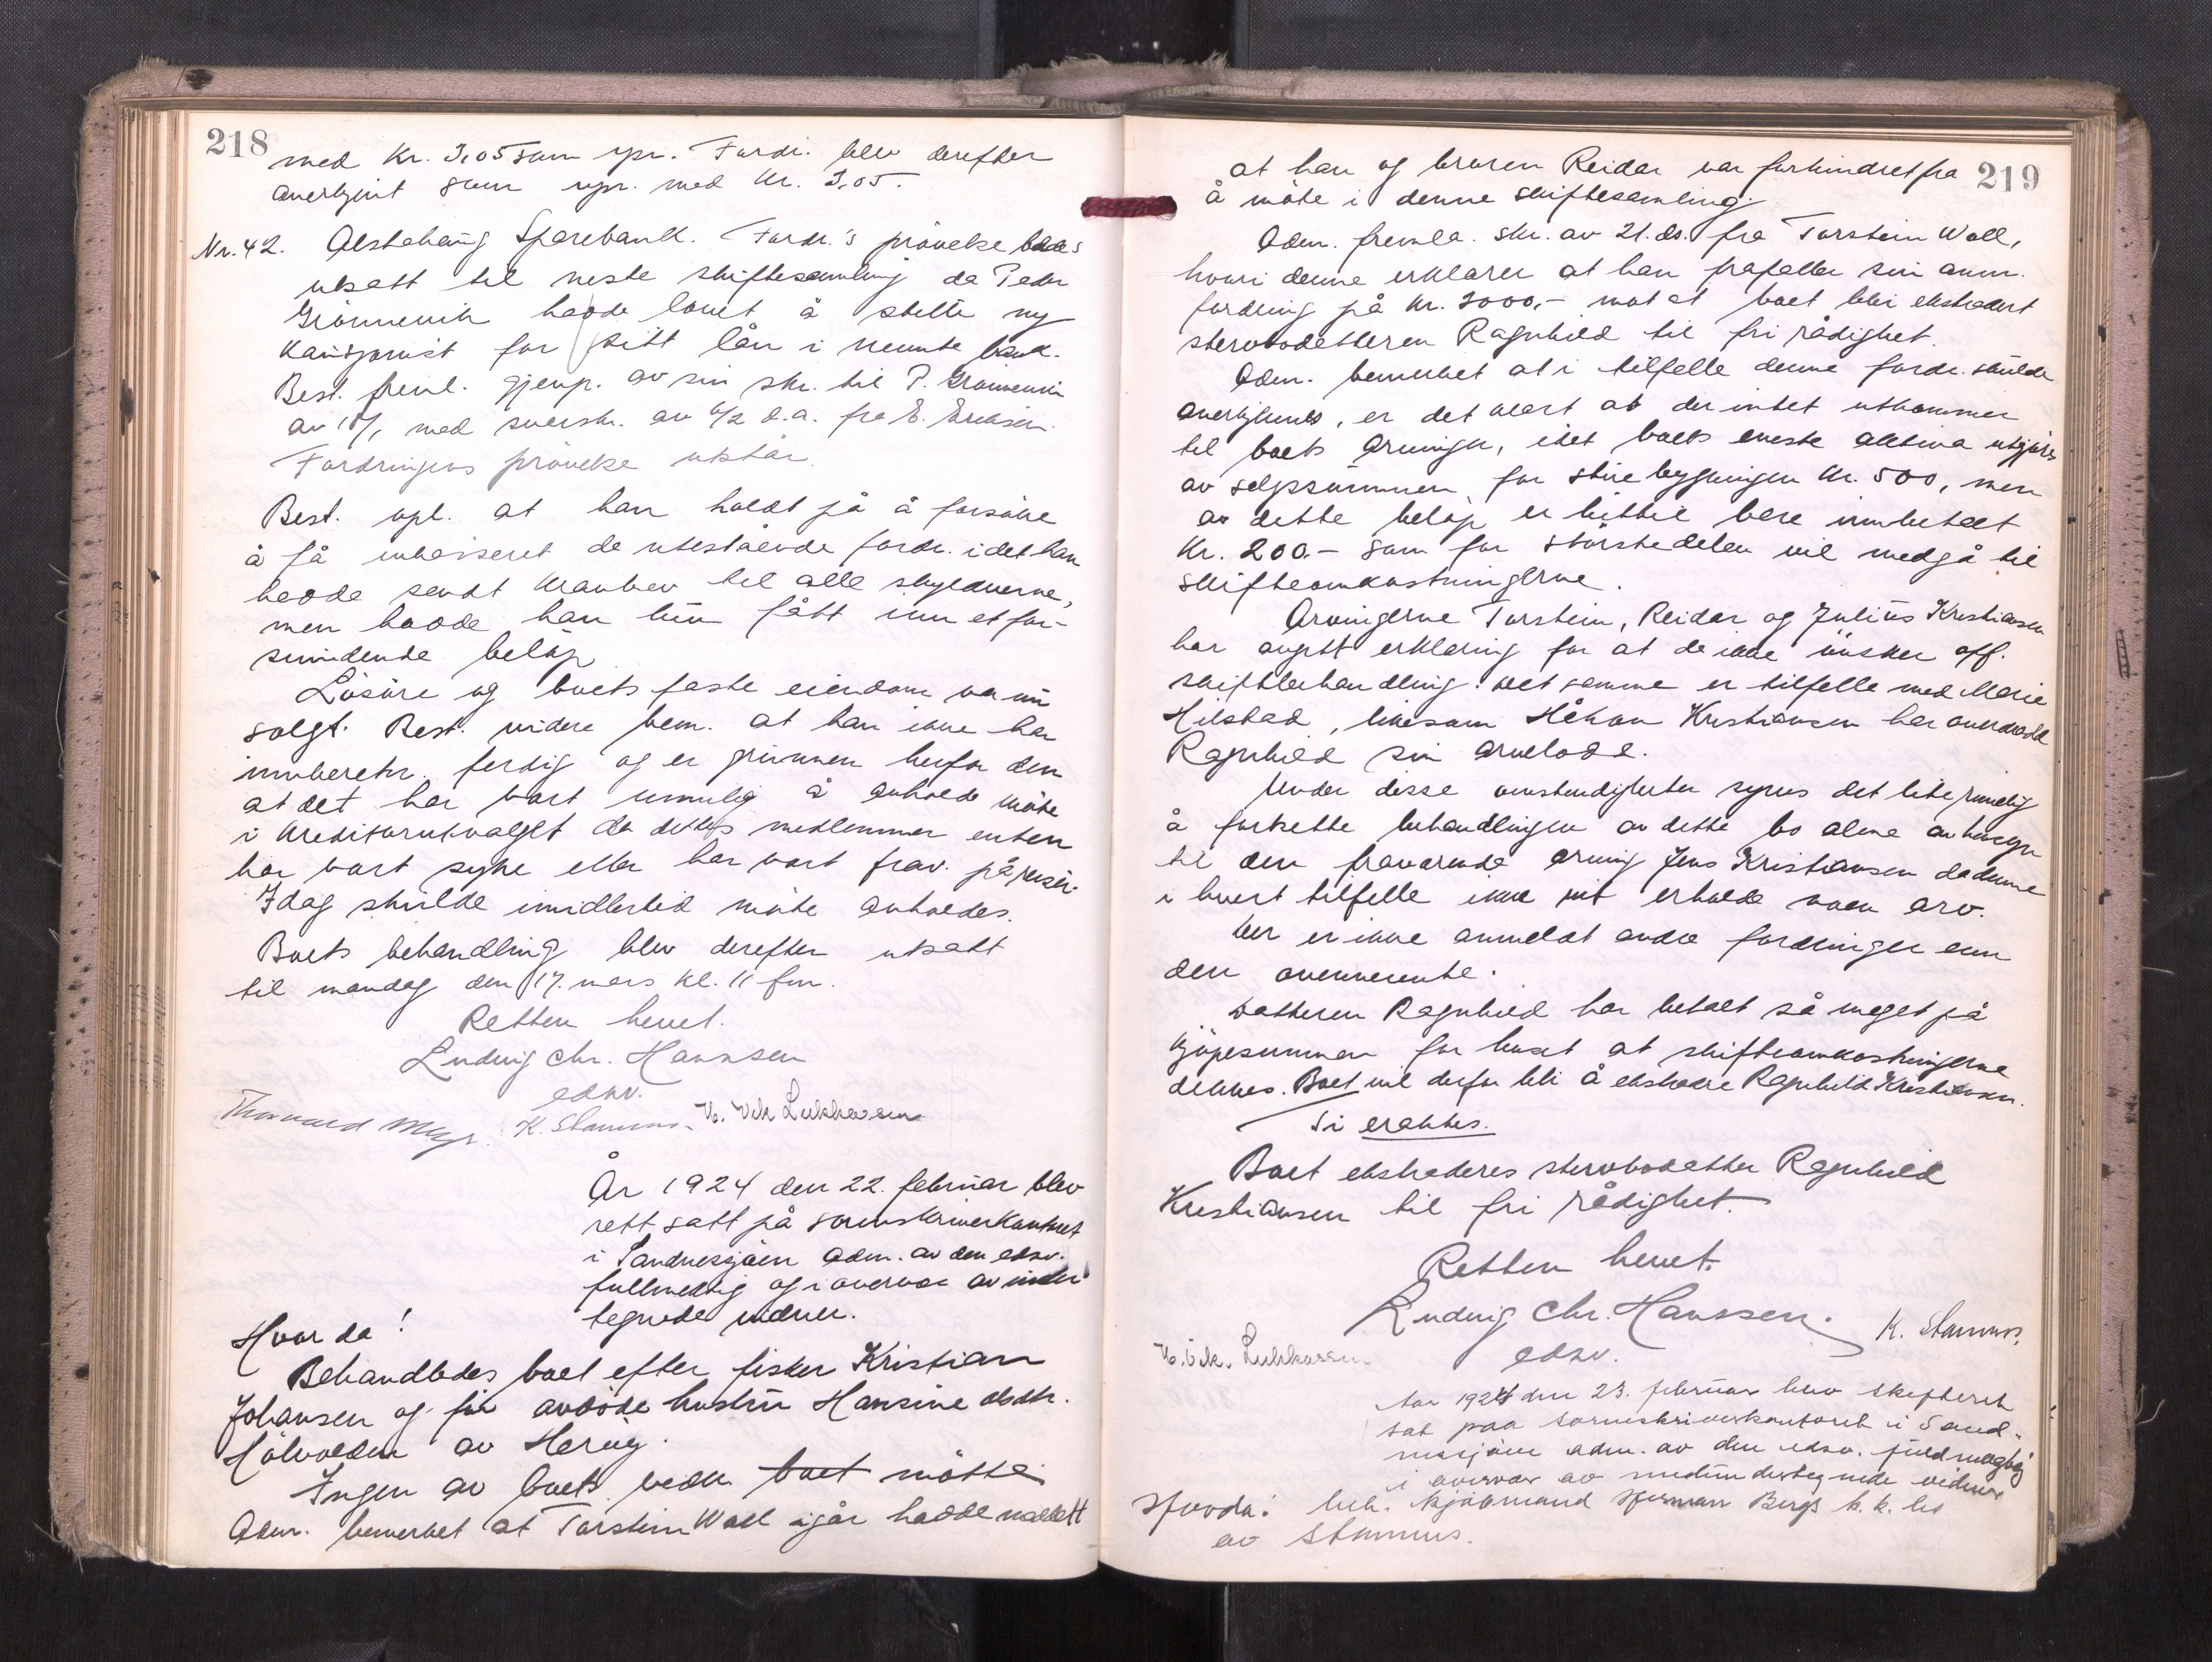 218
med Kr. 3,05 som upr. Fordr. blev derefter
anerkjent som upr. med kr. 3,05.
Nr. 42. Alstahaug Sparebank. Fordr.'s prövelse
utsatt til neste skiftesamling da Peder
Grönnevik hadde lovet å stille ny
kausjonist for sitt lån i nevnte bank.
Best. freml. gjenp. av sin skr. til P. Grönnevik
av med svarskr. av 6/2 d.a. fra E. Eriksen.
Fordringens prövelse utstår.
Best. opl. at han holdt på å forsöke
å få inkasseret de utestående fordr. idet han
hadde sendt kravbrev til alle skyldnerne,
men hadde han kun fått inn et for-
svindende belöp
Lösöre og boets faste eiendom var nu
solgt. Best. videre bem. at han ikke har
innberetn. ferdig og er grunnen herfor den
at det har vært umulig å avholde möte
i kreditorutvalget da dettes medlemmer enten
har vært syke eller har vært frav. på reiser.
Idag skulde imidlertid möte avholdes.
Boets behandling blev derefter utsatt
til mandag den 17. mars kl. 11 fm.
Retten hevet.
Ludvig Chr. Hanssen
edsv.
Thorvard Meyr. K. Stamnes. Lukkassen
År 1924 den 22. februar blev
rett satt på sorenskriverkontoret
i Sandnessjöen adm. av den edsv.
fullmektig og i overvær av under
tegnede vidner.
Hvor da!
Behandledes boet efter fisker Kristian
Johansen og för avdöde hustru Hansine dsdtr.
Hölvolden av Heröy.
Ingen av boets vedk. boet mötte
Adm. bemerket at Torstein Wall igår hadde meldt
219
at han og broren Reidar var forhindret fra
å möte i denne skiftesamling.
Adm. fremla. skr. av 21. ds. fra Torstein Wall,
hvori denne erklærer at han frafaller sin anm.
fordring på kr. 3000,- mot at boet blir ekstradert
stervbodatteren Ragnhild til fri rådighet.
Adm. bemerket at i tilfelle denne fordr. skulde
anerkjennes, er det klart at der intet utkommer
til boets arvinger, idet boets eneste aktiva utgjöres
av salgssummen for stuebygningen kr. 500, men
av dette belöp er hittil bare innbetalt
Kr. 200.- som for störstedelen vil medgå til
skifteomkostningerne.
Arvingerne Torstein, Reidar og Julius Kristiansen
har avgitt erklæring for at de ikke önsker off.
skiftebehandling. Det samme er tilfelle med Marie
Hilstad, likesom Håkon Kristiansen har overdradd
Ragnhild sin arvelodd.
Under disse omstendigheter synes det lite rimelig
å fortsette behandlingen av dette bo alene av hensyn
til den fraværende arving Jens Kristiansen da denne
i hvert tilfelle ikke vil erholde noen arv.
Der er ikke anmeldt andre fordringer enn
den ovennevnte.
Datteren Ragnhild har betalt så meget på
kjöpesummen for huset at skifteomkostningerne
dekkes. Boet vil derfor bli å ekstradere Ragnhild Kristiansen.
Ti eraktes.
Boet ekstraderes stervbodatter Ragnhild
Kristiansen til fri rådighet.
Retten hevet.
Ludvig Chr. Hanssen.
edsv.
K. Stamnes.
Lukkassen
Aar 1924 den 23. februar blev skifteret
sat paa sorenskriverkontoret i Sand-
nessjöen adm. av den edsv. fuldmægtig
i overvær av medundertegnede vidner
Hvorda: beh. kjöbmand Herman Bergs k.k. bo
av Stamnes.